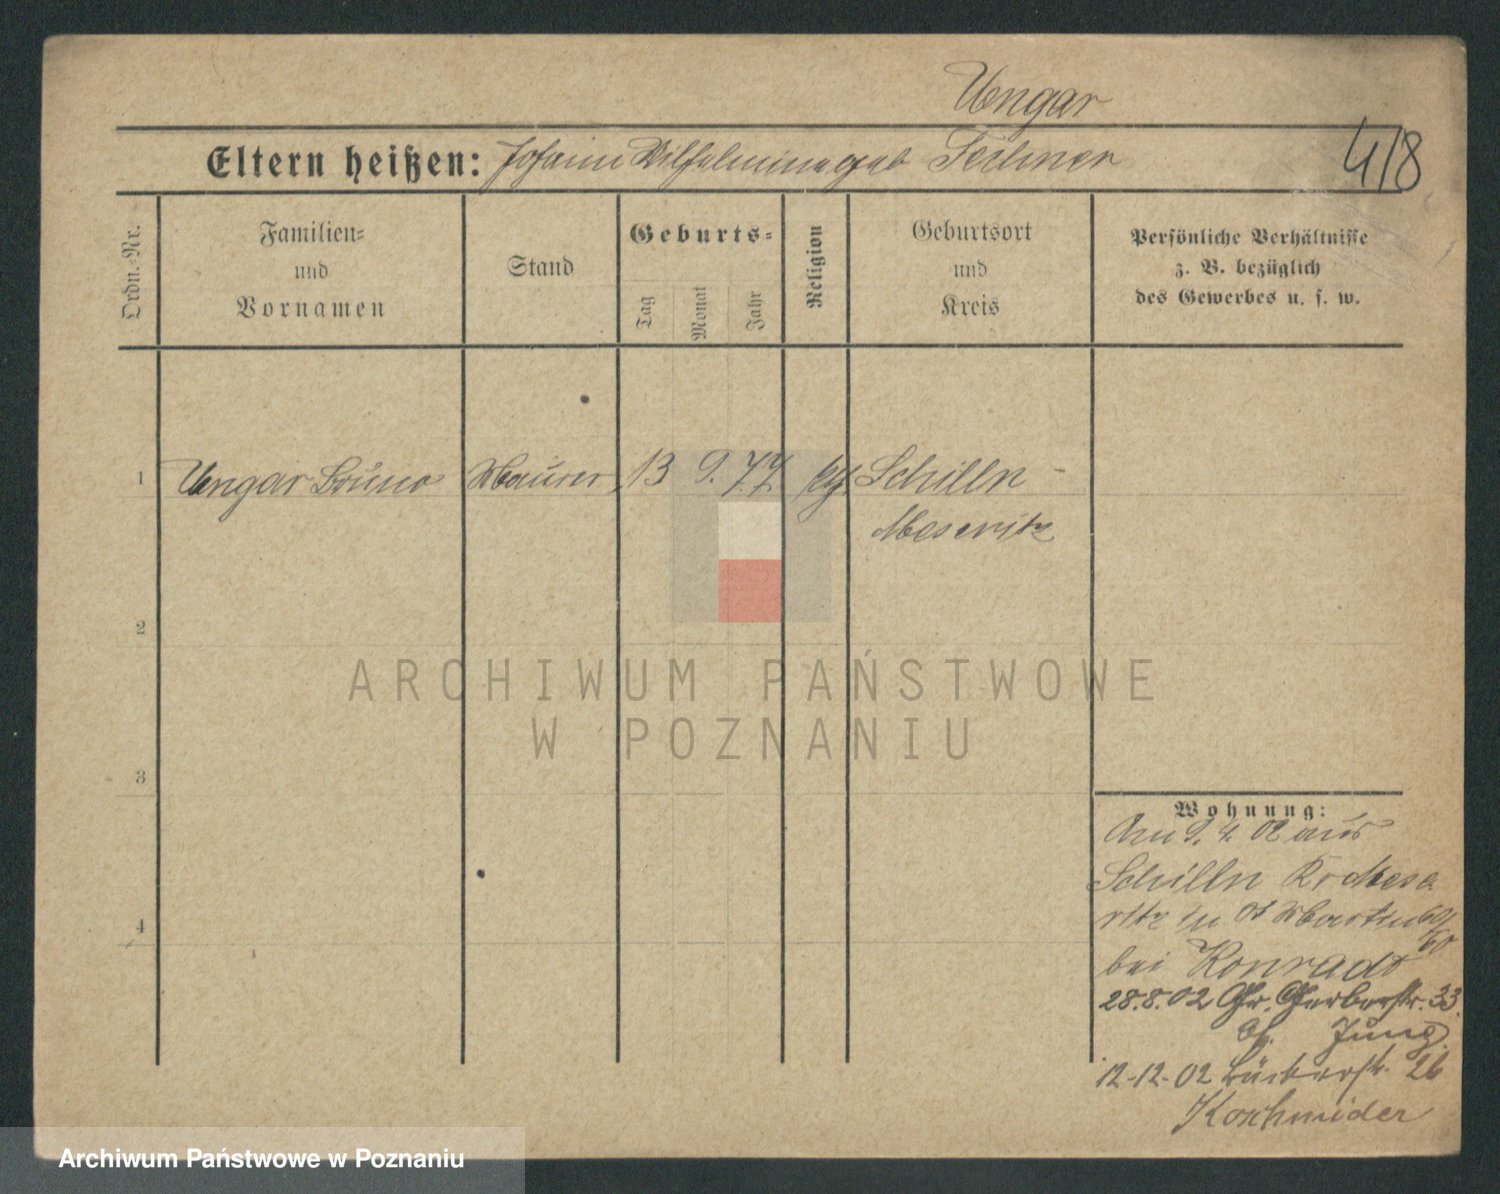 Ungar
Eltern heißen: Johann Wilhelmine geb Fechner
4/8
Ordn.-Nr.
Familien-
und
Vornamen
Stand
Geburts-
Tag
Monat
Jahr
Religion
Geburtsort
und
Kreis
Persönliche Verhältnisse
z. B. bezüglich
des Gewerbes u. s. w.
1 Ungar Bruno Maurer 13 9. 77. Schilln -
Meseritz
2
ARCHIWUM PAŃSTWOWE
W POZNANIU
3
Wohnung:
Am 9. 4. 02 aus
Schilln Kr Mese
ritz in St Martin 60/
60
bei Konrads
28.8.02 Gr. Gerberstr. 33.
Jung.
12-12-02 Bäckerstr. 26
4
Archiwum Państwowe w Poznaniu